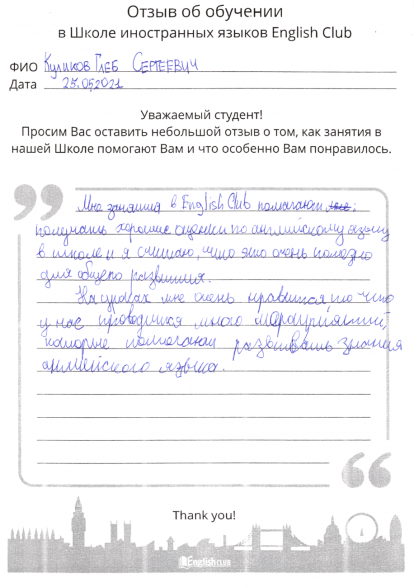 Отзыв об обучении
в Школе иностранных языков English Club
ФИО Куликов Глеб Сергеевич
Дата 25.05.2021
Уважаемый студент!
Просим Вас оставить небольшой отзыв о том, как занятия в
нашей Школе помогают Вам и что особенно Вам понравилось.
Мне занятия в English Club помогают
получать хорошие оценки по английскому языку
в школе и я считаю, что это очень полезно
для общего развития.
На уроках мне очень нравится то что
у нас проводится много мероприятий,
которые помогают развивать знания
английского языка.
Thank you!
English club